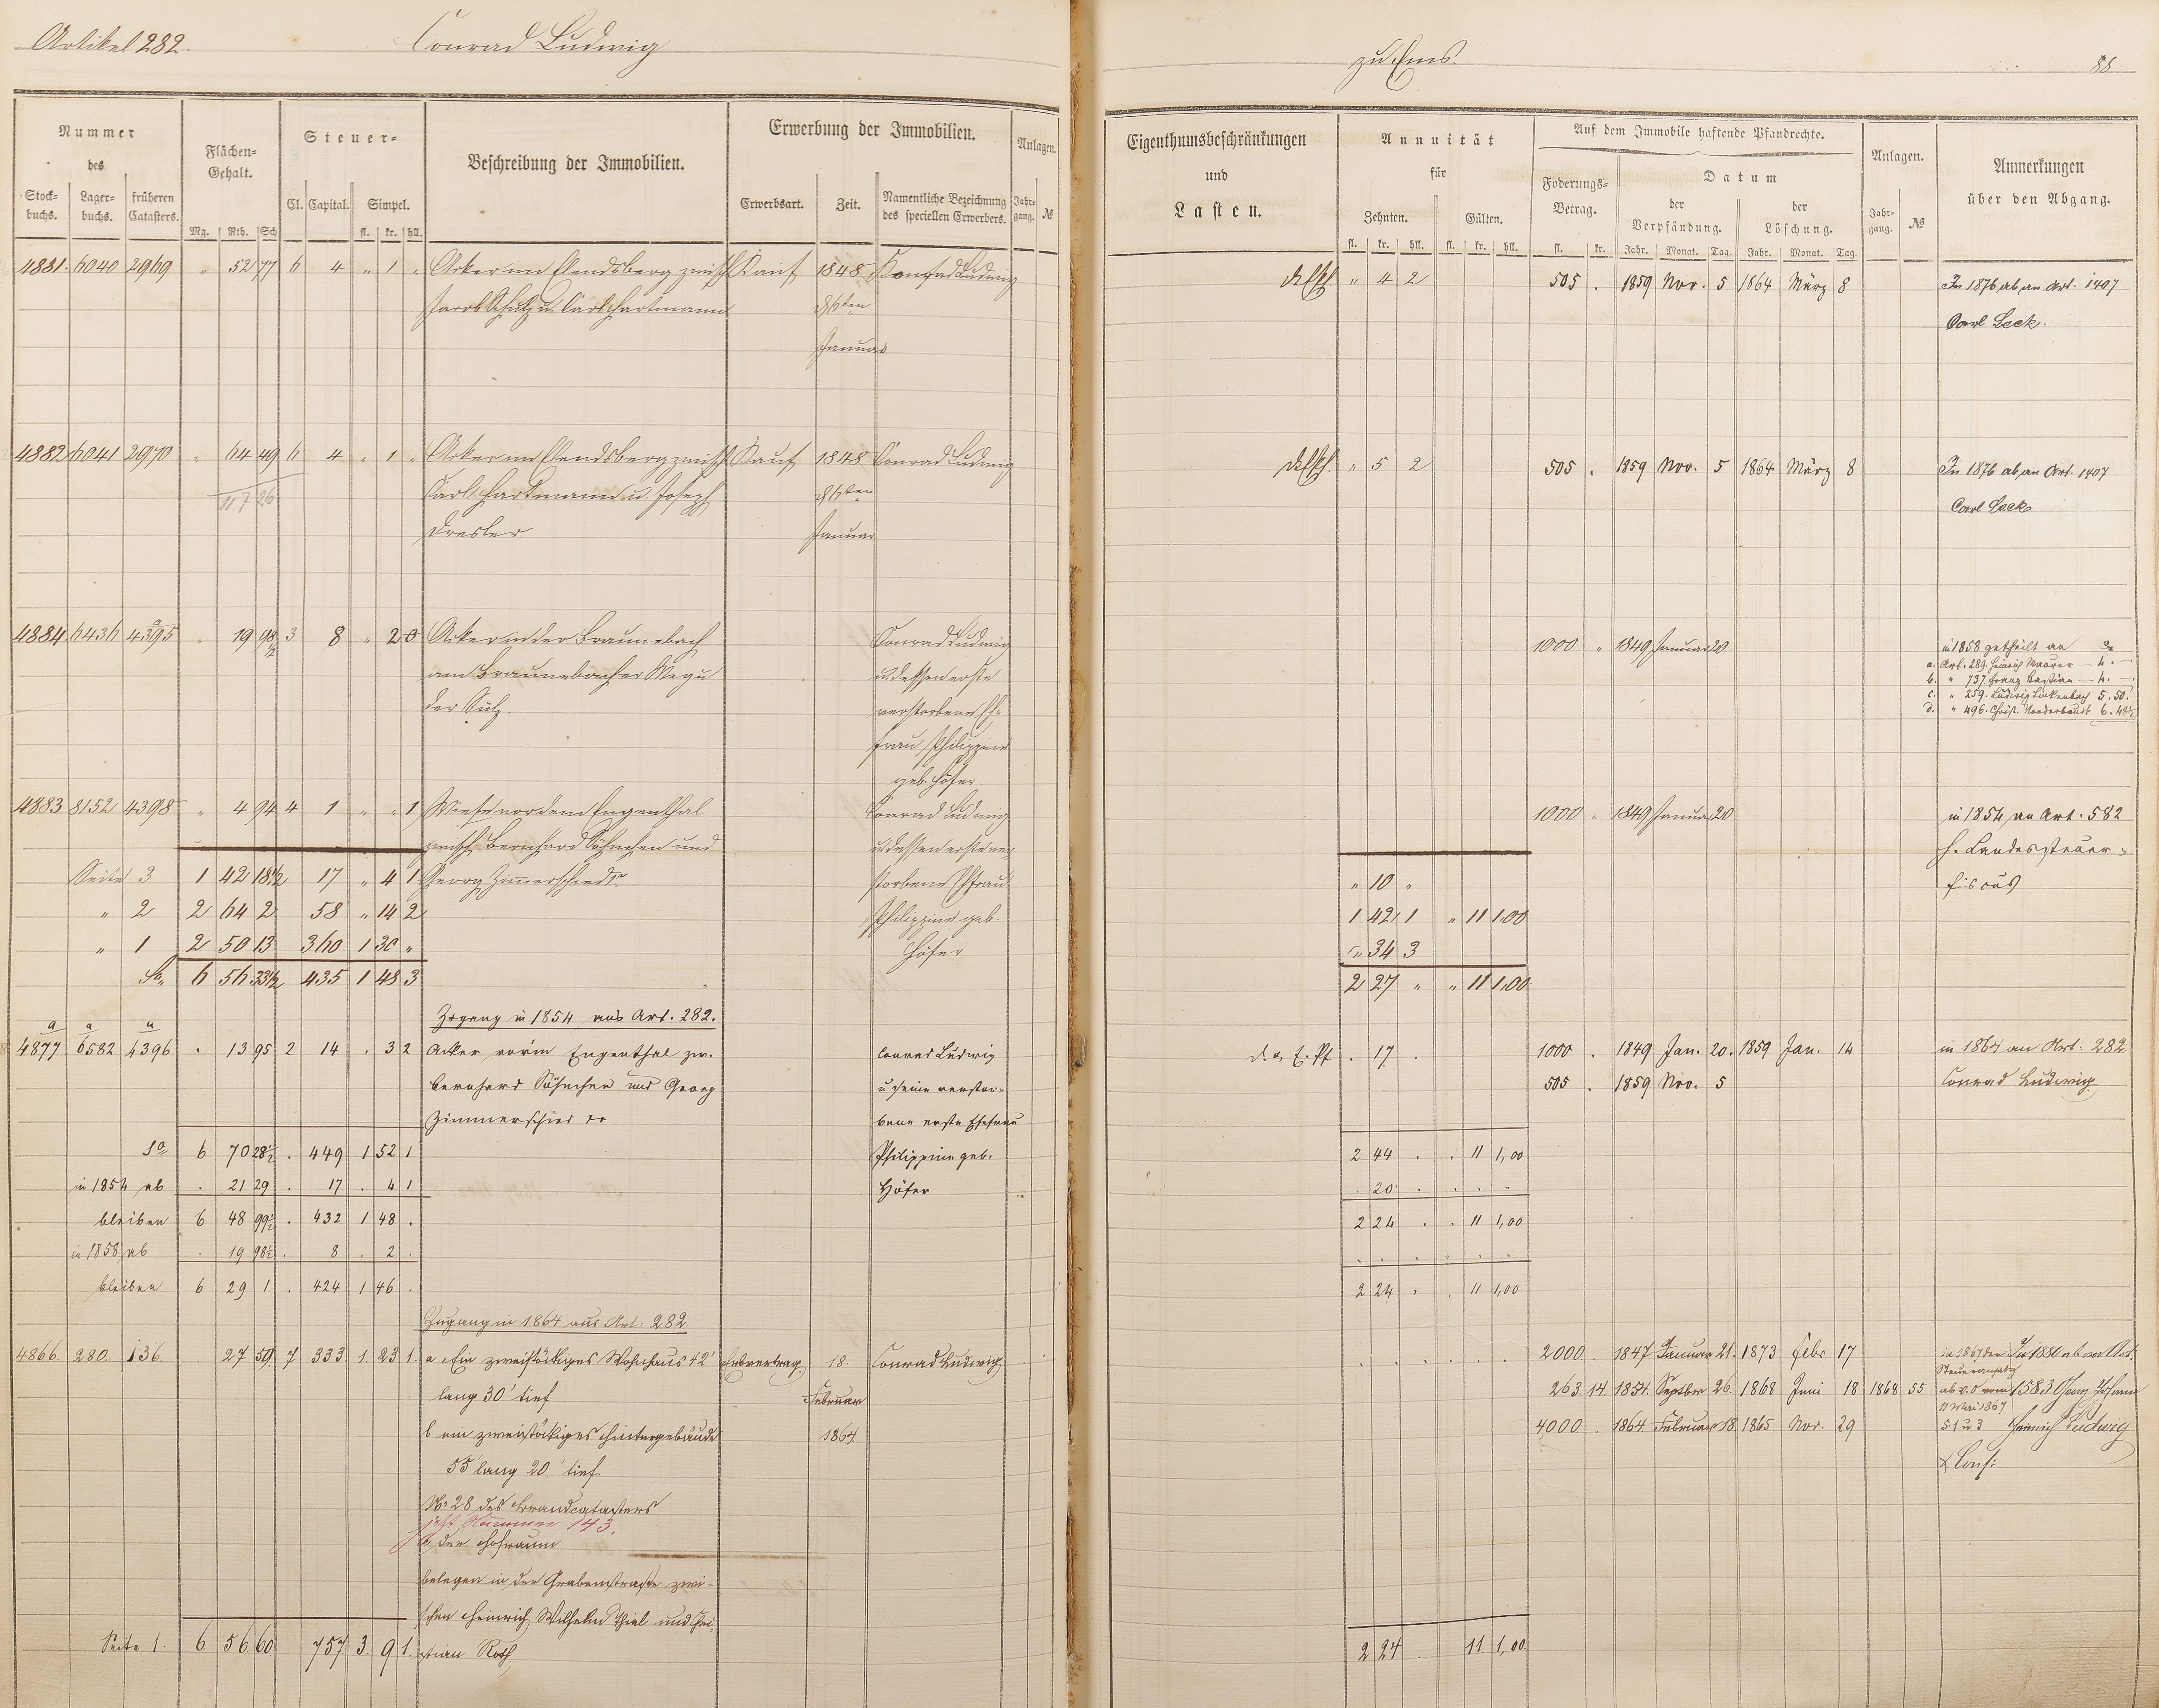 Artikel 282. Conrad Ludwig
Nummer des
Stockbuchs. Lagerbuchs. früheren Catasters.
Flächen-Gehalt.
Mg. Rth. Sch
Steuer-
Cl. Capital. Simpel.
fl. kr. hll.
Beschreibung der Immobilien.
Erwerbung der Immobilien.
Erwerbsart. Zeit. Namentliche Bezeichnung des speciellen Erwerbers.
Anlagen.
Jahrgang. №
4881. 6040 2969 " 52 77 6 4 " 1 " Acker im Elendsberg zwisch Kauf 1848 Conrad Ludwig
Jacob Schulz u. Carl Hartmann 26ten
Januar
4882 6041 2970 " 64 49 6 4 " 1 " Acker im Elendsberg zwisch Kauf 1848 Conrad Ludwig
117 26 Carl Hartmann u. Joseph 26ten
Dresler Januar
4884. 6436 4395 a " 19 98 1/2 3 8 " 2 0 Acker in der Braunebach Conrad Ludwig
am Braunebacher Weg u u. dessen erste
der Sulz. verstorbene Eh-
frau Philippine
geb. Höfer
4883 8152 4398 " 4 94 4 1 " " 1 Wiese vor dem Engenthal Conrad Ludwig
zwisch. Bernhard Söhnchen und u. dessen erste ver
Seite 3 1 42 18 1/2 17 " 4 1 Georg Zimmerschied storbene Ehfrau
" 2 2 64 2 58 " 14 2 Philippine geb.
" 1 2 50 13 360 1 30 " Höfer
Sa. 6 56 33 1/2 435 1 48 3
Zugang in 1854 aus Art. 282.
4877 a 6582 a 4396 a . 13 95 2 14 . 3 2 Acker vor'm Engenthal zw. Conrad Ludwig
Bernhard Söhnchen und Georg u. seine verstor-
Zimmerschied bene erste Ehefrau
Sa 6 70 28 1/2 . 449 1 52 1 Philippine geb.
in 1854 ab . 21 29 . 17 . 4 1 Höfer
bleiben 6 48 99 1/2 . 432 1 48 .
in 1858 ab . 19 98 1/2 . 8 . 2 .
bleiben 6 29 1 . 424 1 46 .
Zugang in 1864 aus Art. 282.
4866. 280. 136. 27 59 7 333 1. 23 1. a Ein zweistöckiges Wohnhaus 42' Erbvertrag 18. Conrad Ludwig
lang 30' tief Februar
b ein zweistöckiges Hintergebäude 1864
55 lang 20' tief.
No 28 des Brandcatasters
jetzt Nummer 143.
c, der Hofraum
belegen in der Grabenstraße zwi-
schen Heinrich Wilhelm Thiel und Chri-
Seite 1. 6 56 60 757 3. 9 1. stian Roth.
zu Ems. 88
Eigenthumsbeschränkungen und Lasten.
Annuität für
Zehnten. Gülten.
fl. kr. hll. fl. kr. hll.
Auf dem Immobile haftende Pfandrechte.
Foderungs-Betrag.
fl. kr.
Datum
der Verpfändung. der Löschung.
Jahr. Monat. Tag. Jahr. Monat. Tag.
Anlagen.
Jahrgang. №
Anmerkungen über den Abgang.
" 4 2 505 . 1859 Nov. 5 1864 März 8 In 1876 ab, an Art. 1407
Carl Leck.
" 5 2 505 . 1859 Nov. 5 1864 März 8 In 1876 ab, an Art. 1407
Carl Leck
1000 " 1849 Januar 20 in 1858 getheilt an
a. Art. 289. Heinrich Maurer — 4. —
b. " 737. Franz Bastian — 4. —
c. " 259. Ludwig Linkenbach 5. 50.
d. " 496. Christ. 6. 48 1/2
1000 " 1849 Januar 20 in 1854 an Art. 582
H. Landessteuer-
" 10 " fiscus
1 42 1 " 11 1,00
" 34 3
2 27 " " 11 1,00
. 17 . 1000 . 1849 Jan. 20. 1859 Jan. 14 in 1864 an Art. 282
505 . 1859 Nov. 5 Conrad Ludwig
2 44 . . 11 1,00
. 20 . . . .
2 24 . . 11 1,00
. . . . . .
2 24 . . 11 1,00
2000. . 1847 Januar 21. 1873 Febr 17 in 1867 der In 1880 ab an Art.
Steueransatz
263 14 1854. Septbr 26. 1868 Juni 18 1868 55 ab v. O vom 1583 Georg Johann
11 Mai 1867
4000. . 1864. Februar 18. 1865 Nov. 29 § 1 u 3 Heinrich Ludwig
& Cons:
2 24 . 11 1,00